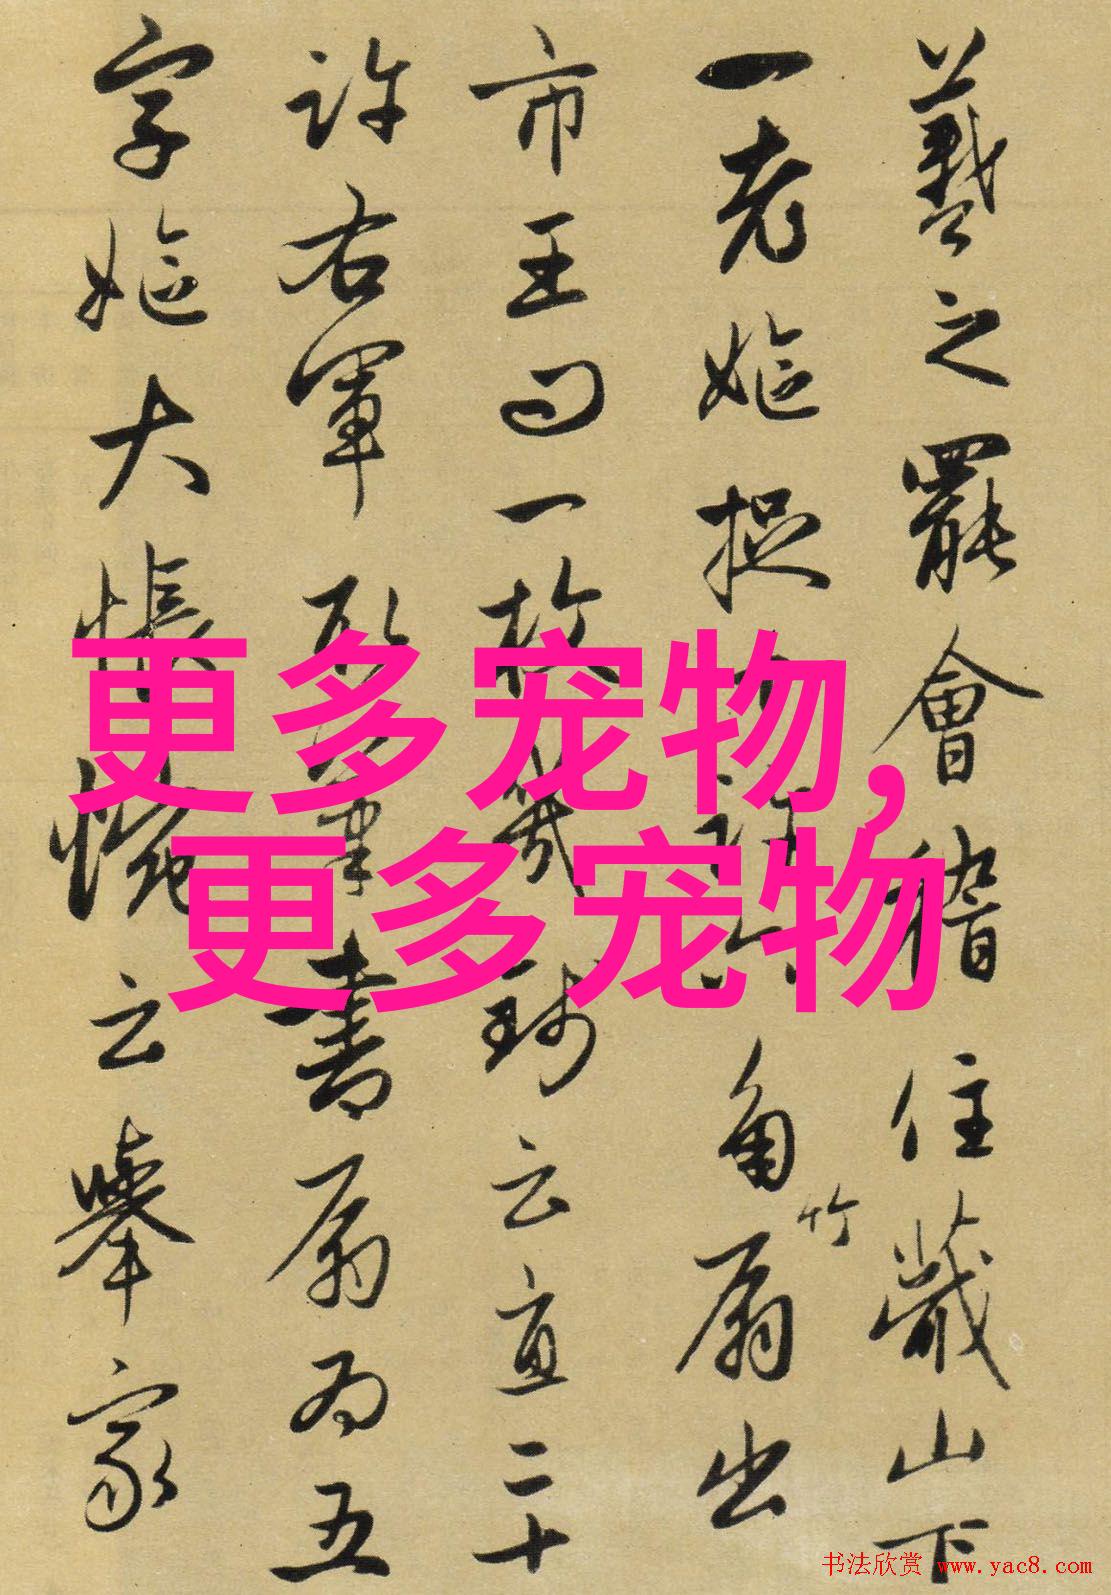 羲之罷會稽住蕺山下
一老嫗捉十許六角竹扇出
市王问一枚幾錢云直二十
許右軍取筆書扇為五
字嫗大悵惋云舉家
更多宠物,
更多宠物
书法欣赏 www.yac8.com